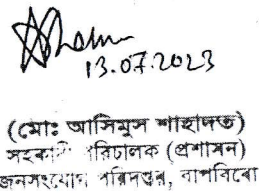 13.07.2023
(মোঃ আসিমুস শাহাদত)
সহকারী পরিচালক (প্রশাসন)
জনসংযোগ পরিদপ্তর, বাপবিবো